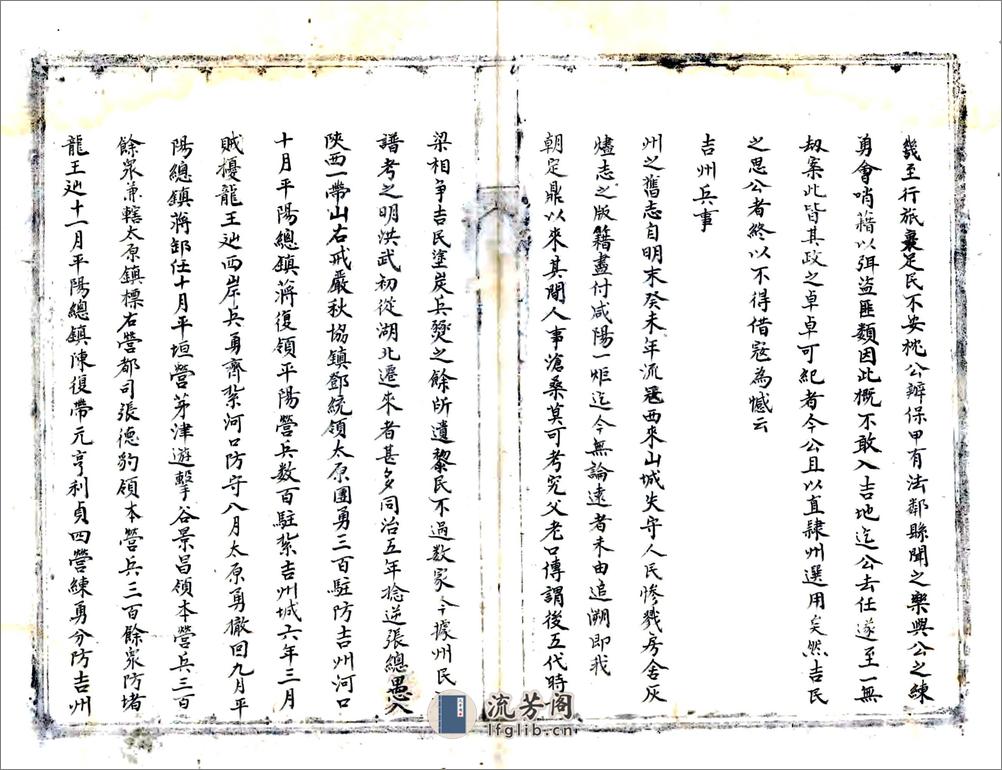 幾至行旅裹足民不安枕公辦保甲有法鄰縣聞之樂與公之練
勇會哨藉以弭盜匪類因此概不敢入吉地迄公去任遂至一無
刼案此皆其政之卓卓可紀者今公且以直隸州選用矣然吉民
之思公者終以不得借寇為憾云
吉州兵事
州之舊志自明末癸未年流寇西來山城失守人民慘戮房舍灰
燼志之版籍盡付咸陽一炬迄今無論遠者未由追溯即我
朝定鼎以來其間人事滄桑莫可考究父老口傳謂後五代時
梁相爭吉民塗炭兵燹之餘所遺黎民不過数家今據州民
譜考之明洪武初從湖北遷來者甚多同治五年捻逆張總愚入
陝西一帶山右戒嚴秋協鎮鄧統領太原團勇三百駐防吉州河口
十月平陽總鎮蔣復領平陽營兵数百駐紮吉州城六年三月
賊擾龍王辿西岸兵勇齊紮河口防守八月太原勇撤回九月平
陽總鎮蔣卸任十月平垣營茅津遊擊谷景昌領本營兵三百
餘眾兼轄太原鎮標右營都司張德豹領本營兵三百餘眾防堵
龍王辿十一月平陽總鎮陳復帶元亨利貞四營練勇分防吉州
流芳阁
lfglib.cn